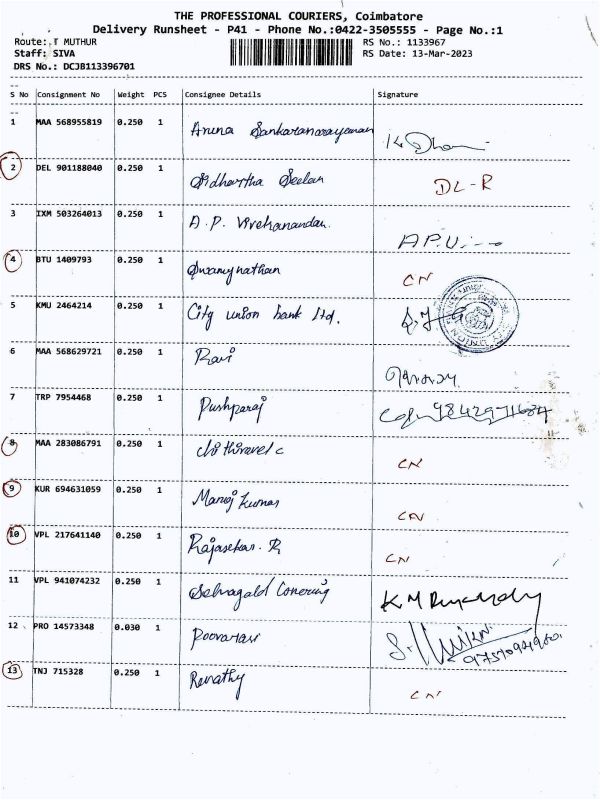 THE PROFESSIONAL COURIERS, Coimbatore
Delivery Runsheet - P41 - Phone No.:0422-3505555 - Page No.:1
Route: T MUTHUR RS No.: 1133967
Staff: SIVA RS Date: 13-Mar-2023
DRS No.: DCJB113396701
S No Consignment No Weight PCS Consignee Details Signature
1 MAA 568955819 0.250 1 Aruna Sankaranarayanan
2 DEL 901188040 0.250 1 Sidhartha Seelan DL-R
3 IXM 503264013 0.250 1 A.P. Vivekanandan.
4 BTU 1409793 0.250 1 Swamynathan CN
5 KMU 2464214 0.250 1 City union bank ltd.
6 MAA 568629721 0.250 1 Ravi
7 TRP 7954468 0.250 1 Pushparaj
8 MAA 283086791 0.250 1 Chithiravel c CN
9 KUR 694631059 0.250 1 Manoj Kumar CN
10 VPL 217641140 0.250 1 Rajasekar. R CN
11 VPL 941074232 0.250 1 K M
12 PRO 14573348 0.030 1
13 TNJ 715328 0.250 1 Revathy CN